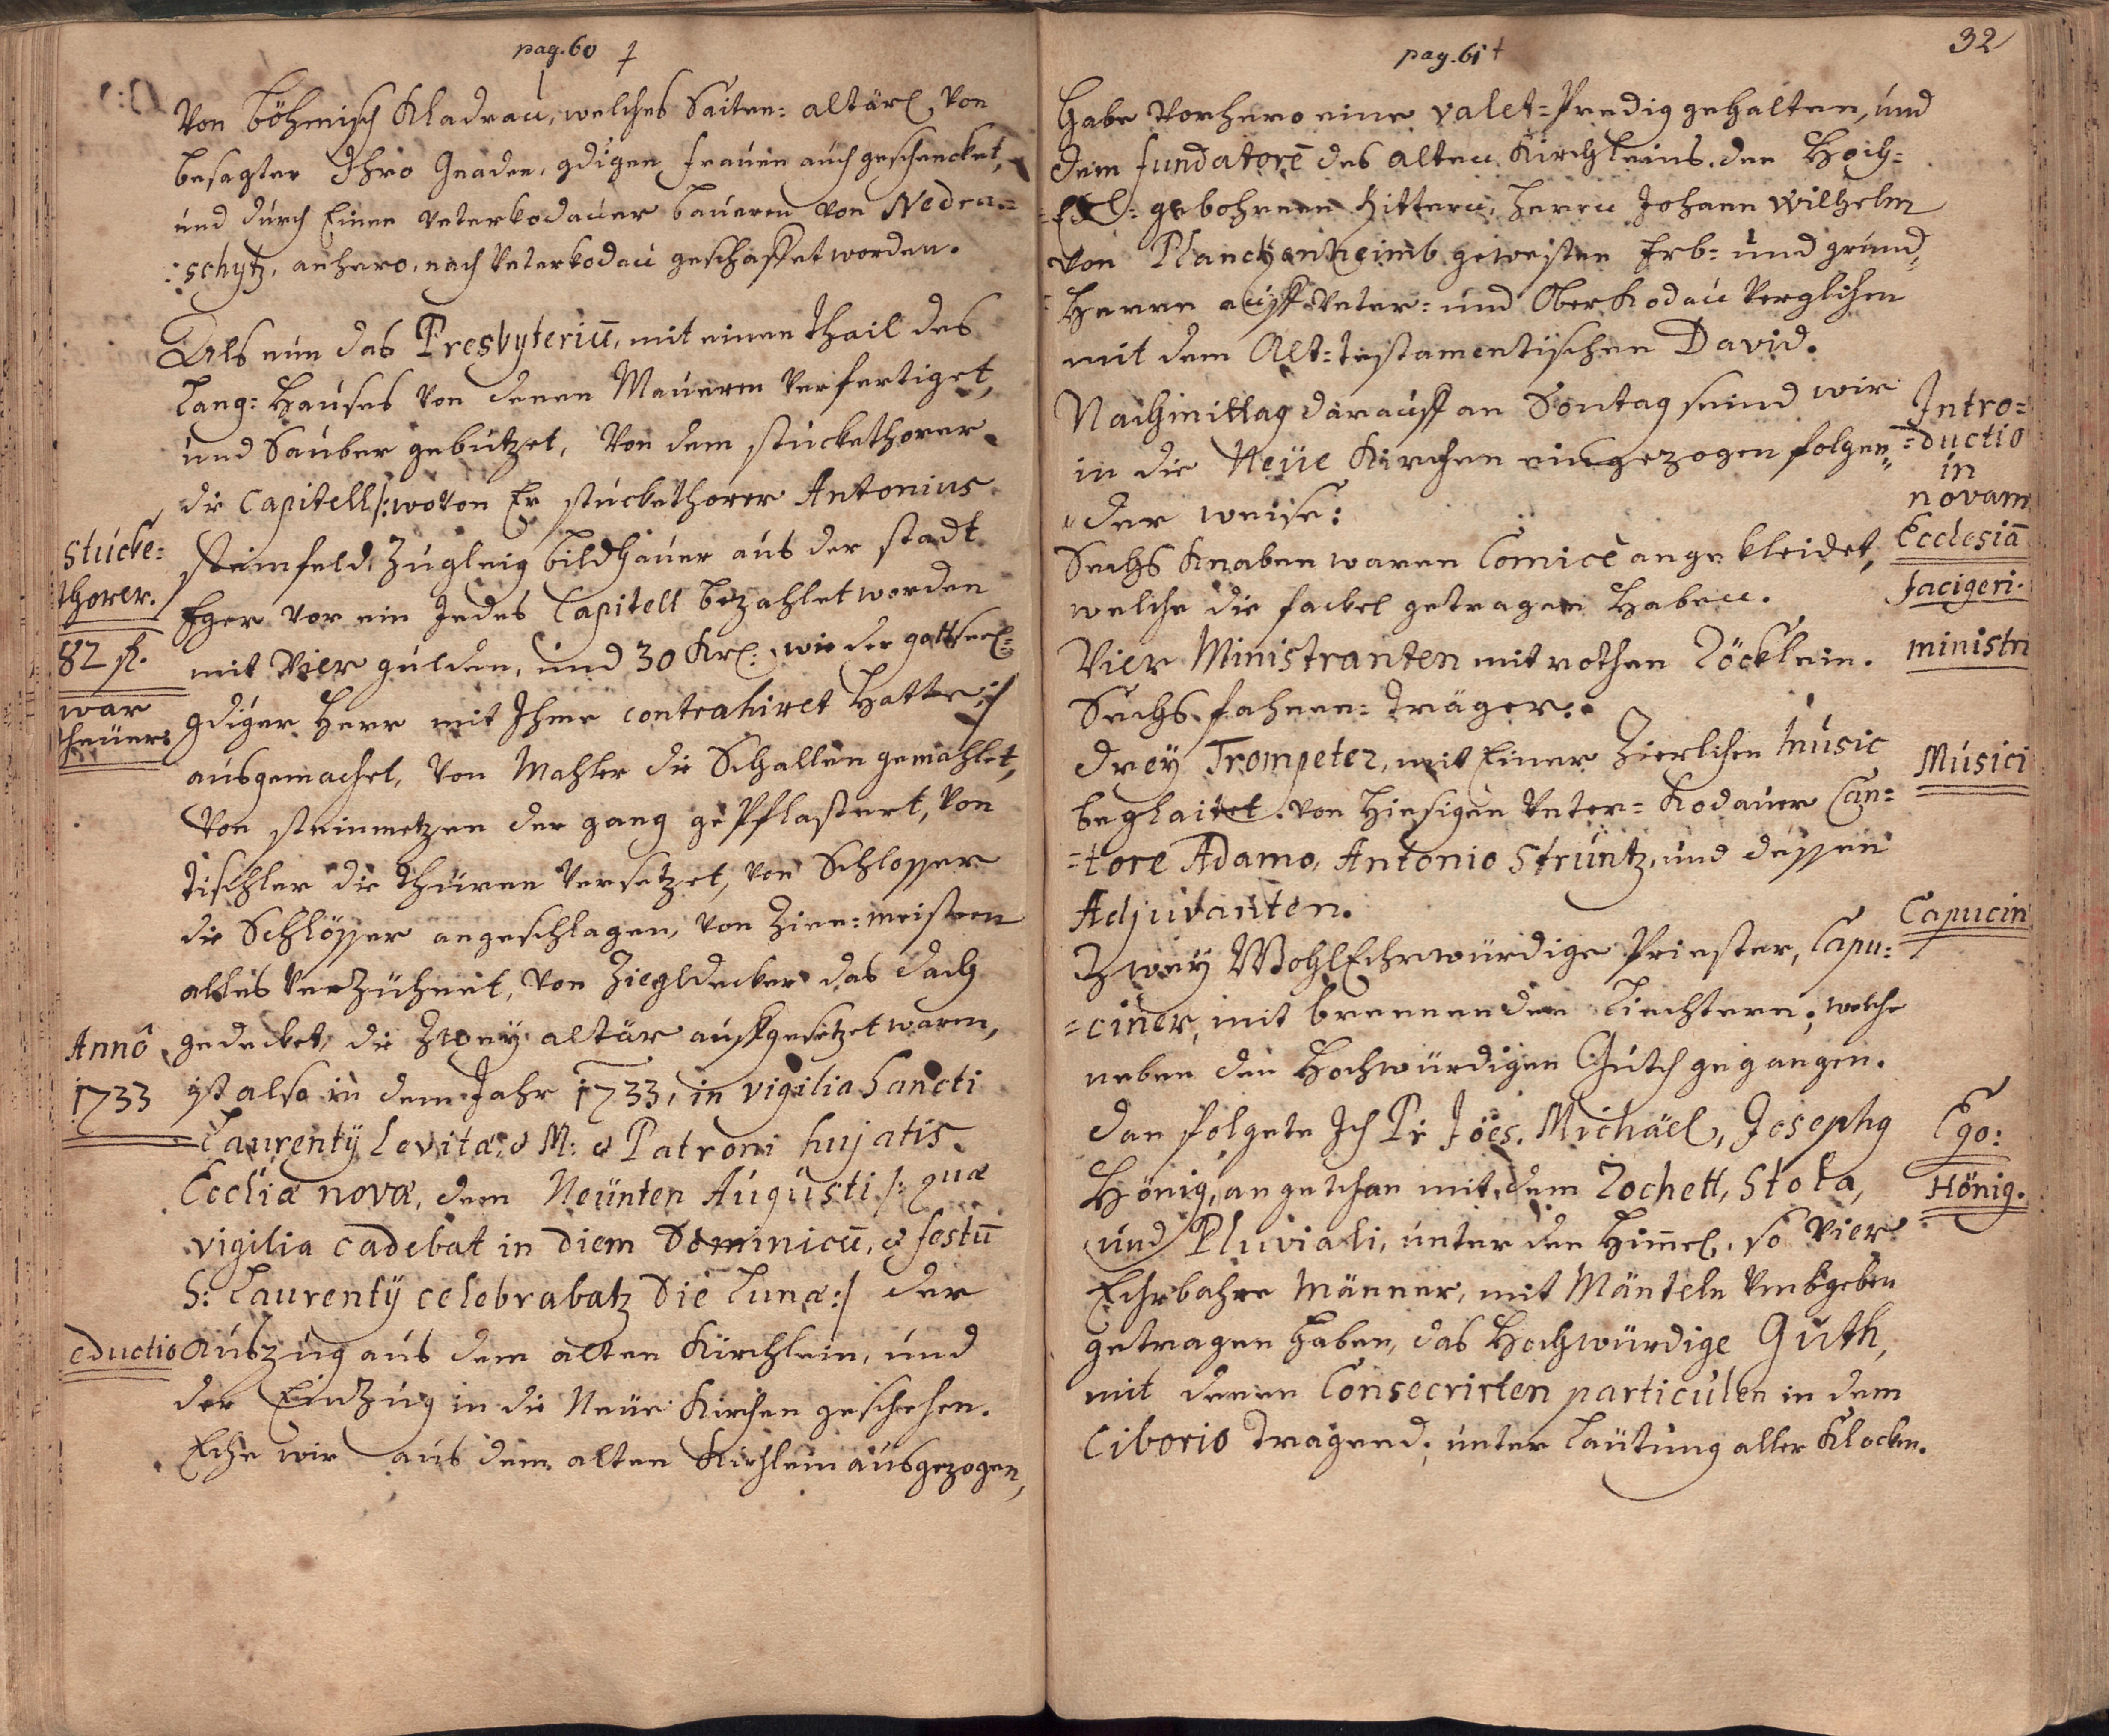 pag. 60 †
Von böhmisch Kladrau, welches Saiten= altärl, von
besagter Ihro Gnaden, gdigen frauen auch geschencket,
und durch Einen Unterkodauer bauern von Nedra=
=schytz, anhero, nach Unterkodau geschaffet worden.
Als nun das Presbyteriū, mit einen thail des
Lang= Hauses von denen Mauern verfertiget,
und Sauber gebutzet, von dem stuckethorer
die Capitell /: wovon Er stuckethorer Antonius
Stucke=
thorer.
Steinfeld, Zugleig bildhauer aus der stadt
Eger vor ein Jedes Capitell bezahlet worden
82 fl.
mit Vier gulden, und 30 Krl: wie der gottseel:
war
theuer.
gdiger Herr mit Ihme contrahiret hatte :/
ausgemachet, von Mahler die Schallen gemahlet,
Von steinmetzen der gang gepflastert, von
tischler die thüren versetzet, von Schlosser
die Schlösser angeschlagen, von Zien= meistern
alles verzühnet, von Ziegldecker das dach
Annô
1733
gedecket, die Zwey altär auffgesetzet waren,
ist also in dem Jahr 1733, in vigilia Sancti
Laurentÿ Levitæ & M: & Patroni hujatis
Eccliæ novæ, dem Neünten Augusti /: quæ
vigilia cadebat in Diem Dominicū, & festū
S: Laurentÿ celebrabatz Die Lunæ :/ der
eductio
Auszug aus dem alten Kirchlein, und
der Einzug in die Neüe Kirchen geschehen.
Ehe wir aus dem alten Kirchlein ausgezogen,
pag. 61 †
32
habe vorhero eine valet= Predig gehalten, und
dem fundatorē des alten Kirchleins, den Hoch=
=Edl= gebohrnen Rittern, Herrn Johann Wilhelm
von Planckenheimb gewesten Erb= und grund=
Herrn auff Unter= und Ober Kodau verglichen
mit dem Alt=testamentischen David.
Nachmittag darauff an Sontag seind wir
in die Neüe Kirchen eingezogen folgen=
=der weise:
Intro=
=ductio
in
novam
Ecclesiā
Sechs Knaben waren Comicè angekleidet,
welche die fackel getragen haben.
facigeri.
Vier Ministranten mit rothen Röcklein.
ministri
Sechs fahnen= träger.
Drey Trompeter, mit Einer Zierlichen Music
beglaitet, von hiesigen Unter= Kodauer Can=
=tore Adamo, Antonio Struntz, und dessen
Adjuvanten.
Musici
Zwey WohlEhrwürdige Priester, Capu=
=ciner, mit brennenden Liechtern, welche
neben den Hochwürdigen Guth gegangen.
Capucin
Dan folgete Ich Pr Jões. Michäel, Josephg
Hönig, angethan mit dem Rochett, Stola,
und Pluviali, unter den Him̄el, so Vier
Ehrbahre Männer, mit Mänteln Umbgeben
getragen haben, das Hochwürdige Guth,
mit denen Consecrirten particulen in dem
Ciborio tragend, unter Laütung aller Klocken.
Ego:
Hönig.